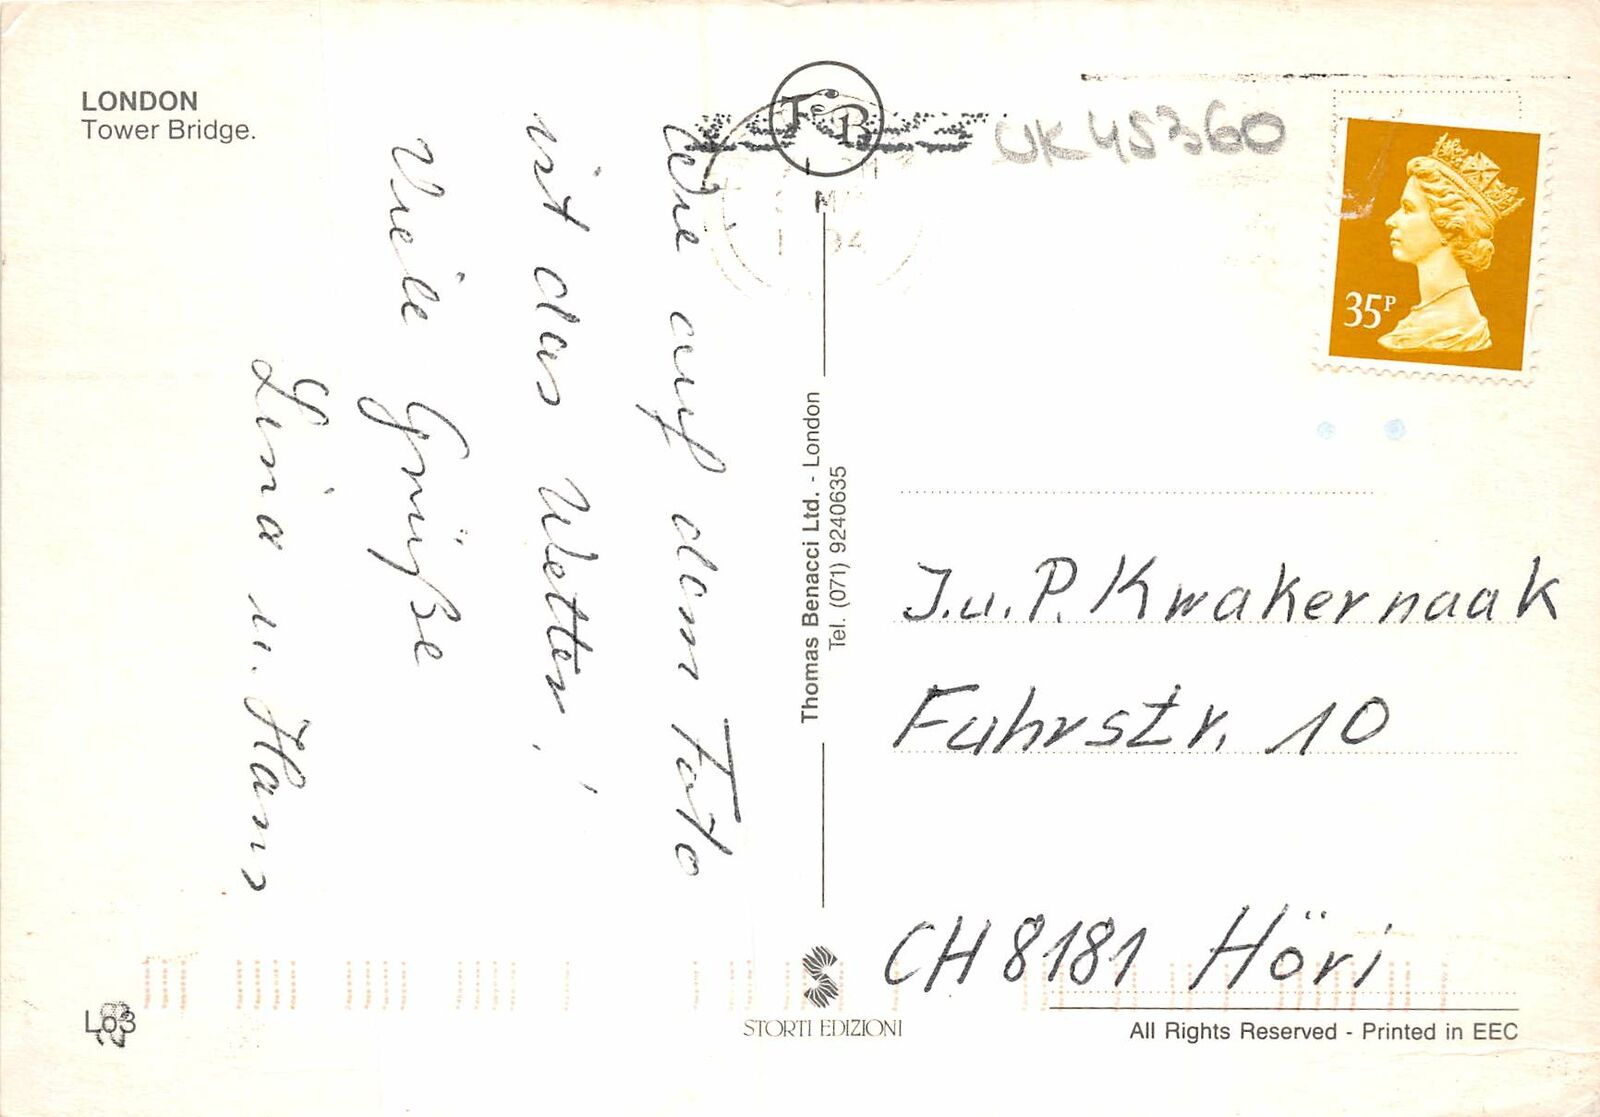 LONDON
Tower Bridge.
Wie auf dem Foto
ist das Wetter!
Viele Grüße
Lina u. Hans
TB
UK45360
35P
Thomas Benacci Ltd. - London
Tel. (071) 9240635
J.u.P. Kwakernaak
Fuhrstr. 10
CH 8181 Höri
Lo3
STORTI EDIZIONI
All Rights Reserved - Printed in EEC